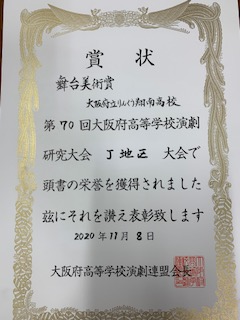 賞状
舞台美術賞
大阪府立りんくう翔南高校
第70回大阪府高等学校演劇
研究大会 J地区 大会で
頭書の栄誉を獲得されました
玆にそれを讃え表彰致します
2020年11月8日
大阪府高等学校演劇連盟会長